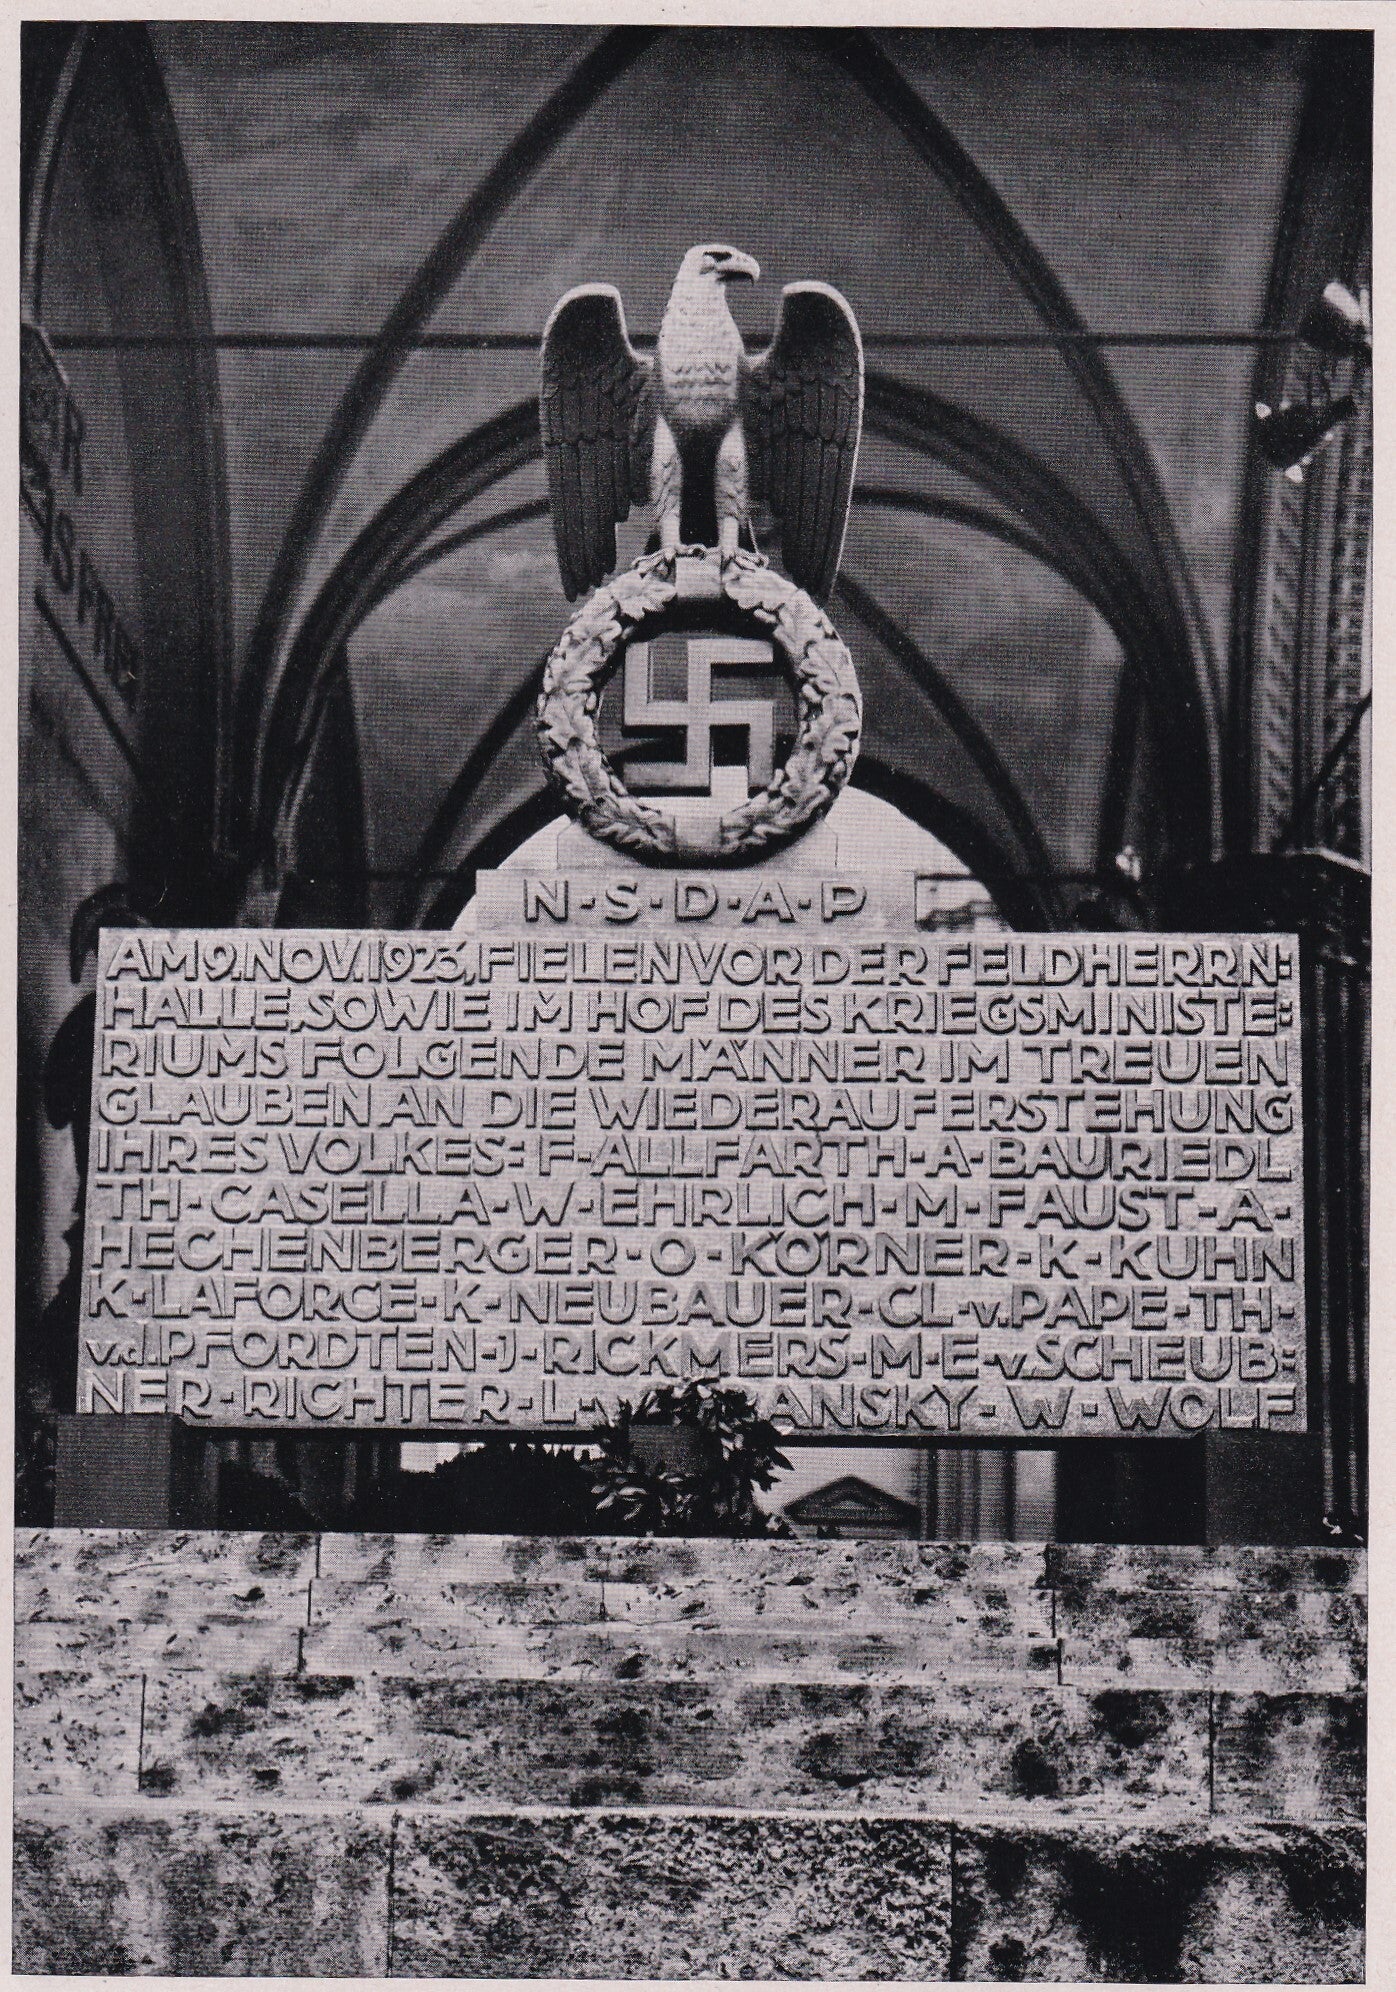 N·S·D·A·P
AM 9. NOV. 1923, FIELEN VOR DER FELDHERRN=
HALLE, SOWIE IM HOF DES KRIEGSMINISTE=
RIUMS FOLGENDE MÄNNER IM TREUEN
GLAUBEN AN DIE WIEDERAUFERSTEHUNG
IHRES VOLKES= F·ALLFARTH·A·BAURIEDL
TH·CASELLA·W·EHRLICH·M·FAUST·A·
HECHENBERGER·O·KÖRNER·K·KUHN
K·LAFORCE·K·NEUBAUER·CL·v.PAPE·TH·
v.d.PFORDTEN·J·RICKMERS·M·E·v.SCHEUB=
NER·RICHTER·L·ANSKY·W·WOLF